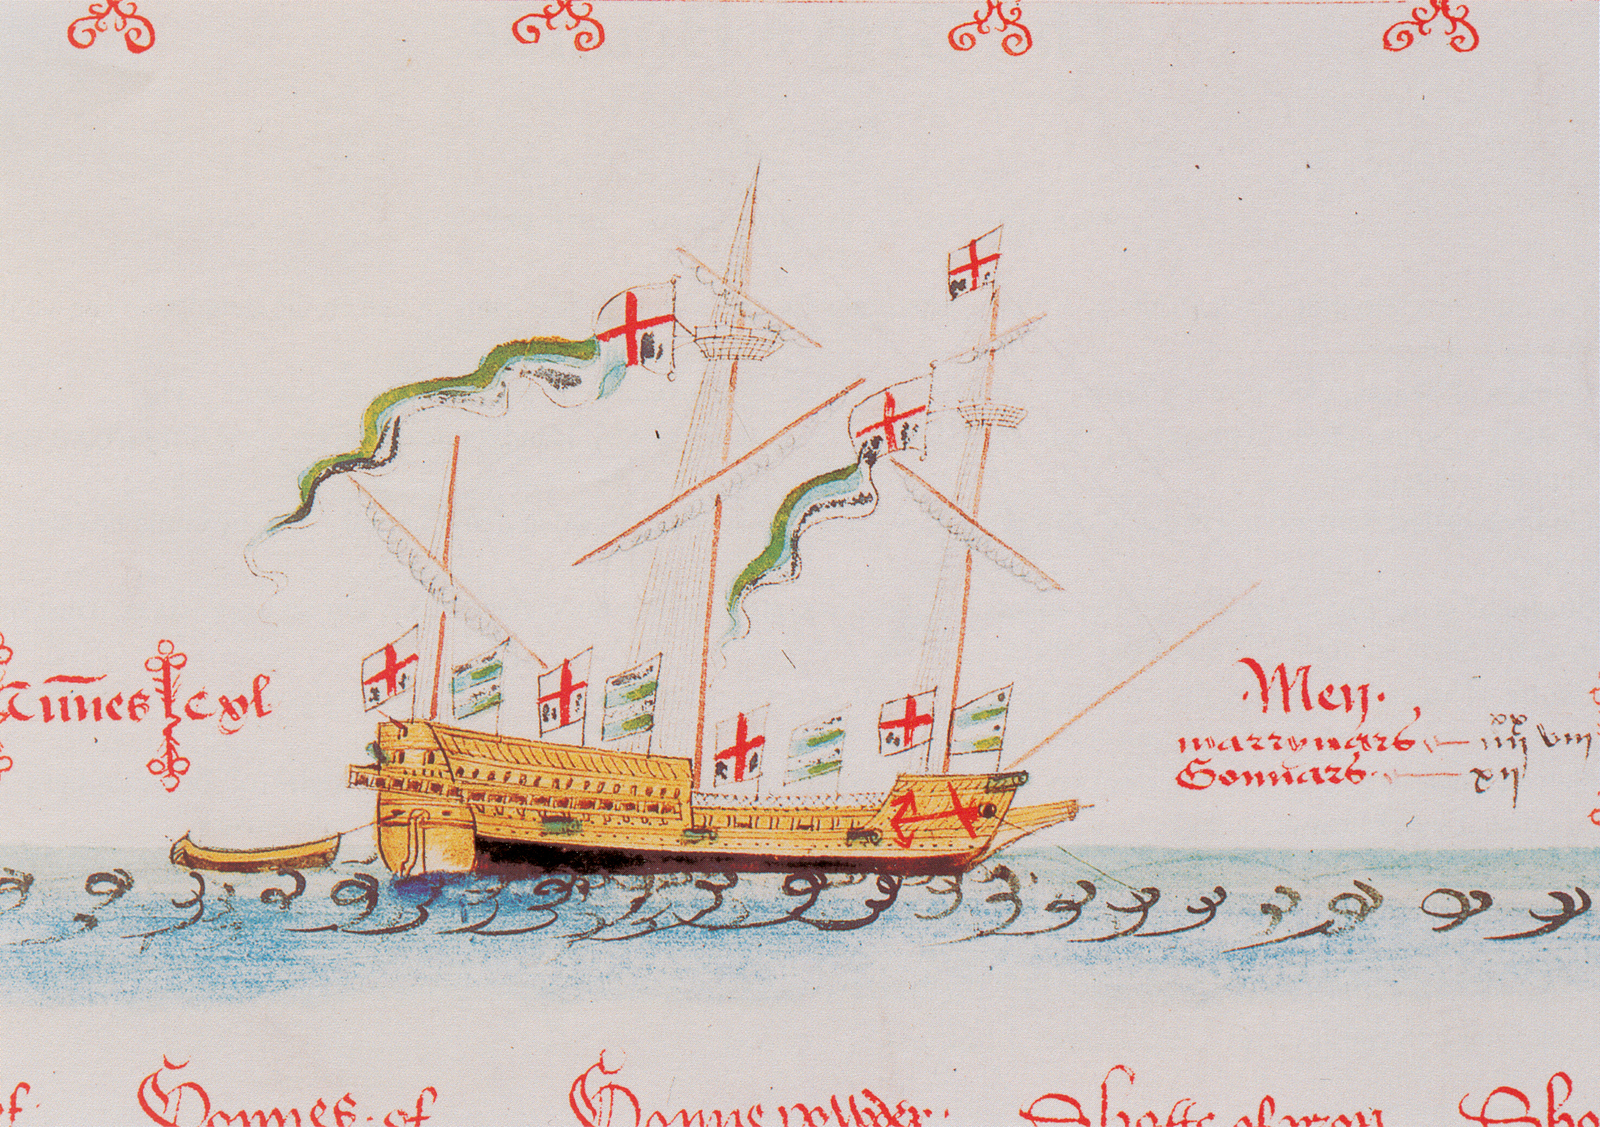 Tunnes cxl
Men.
marrynars — iiij xx viij
Gonnars — xij
of Gonnes of Gonnepowder. Shotte of yron Sho